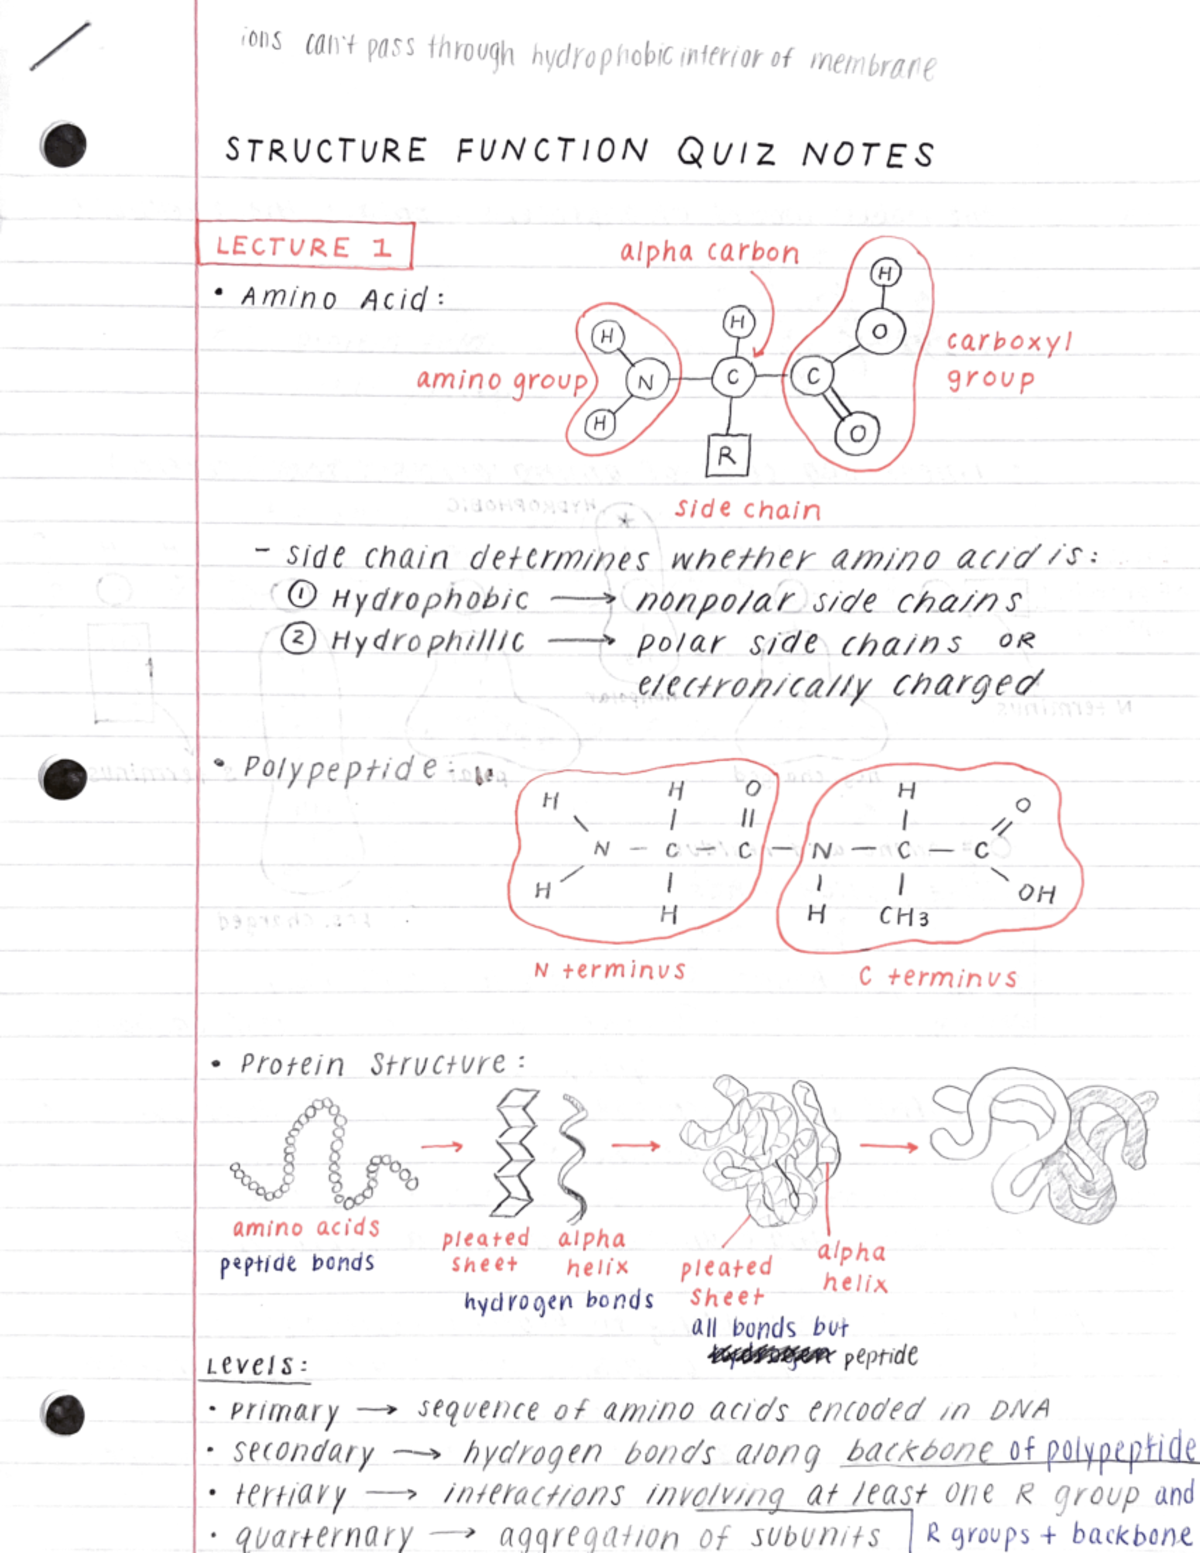 ions can't pass through hydrophobic interior of membrane
STRUCTURE FUNCTION QUIZ NOTES
LECTURE 1
• Amino Acid:
alpha carbon
amino group
carboxyl
group
H
H
N
H
H
C
R
C
H
O
O
side chain
- side chain determines whether amino acid is:
① Hydrophobic → nonpolar side chains
② Hydrophillic → polar side chains OR
electronically charged
• Polypeptide:
H H O H O
N - C - C - N - C - C
H H H CH3 OH
N terminus C terminus
• Protein Structure:
amino acids
peptide bonds
pleated
sheet
alpha
helix
hydrogen bonds
pleated
sheet
alpha
helix
all bonds but
peptide
Levels:
• primary → sequence of amino acids encoded in DNA
• secondary → hydrogen bonds along backbone of polypeptide
• tertiary → interactions involving at least one R group and
• quarternary → aggregation of subunits
R groups + backbone